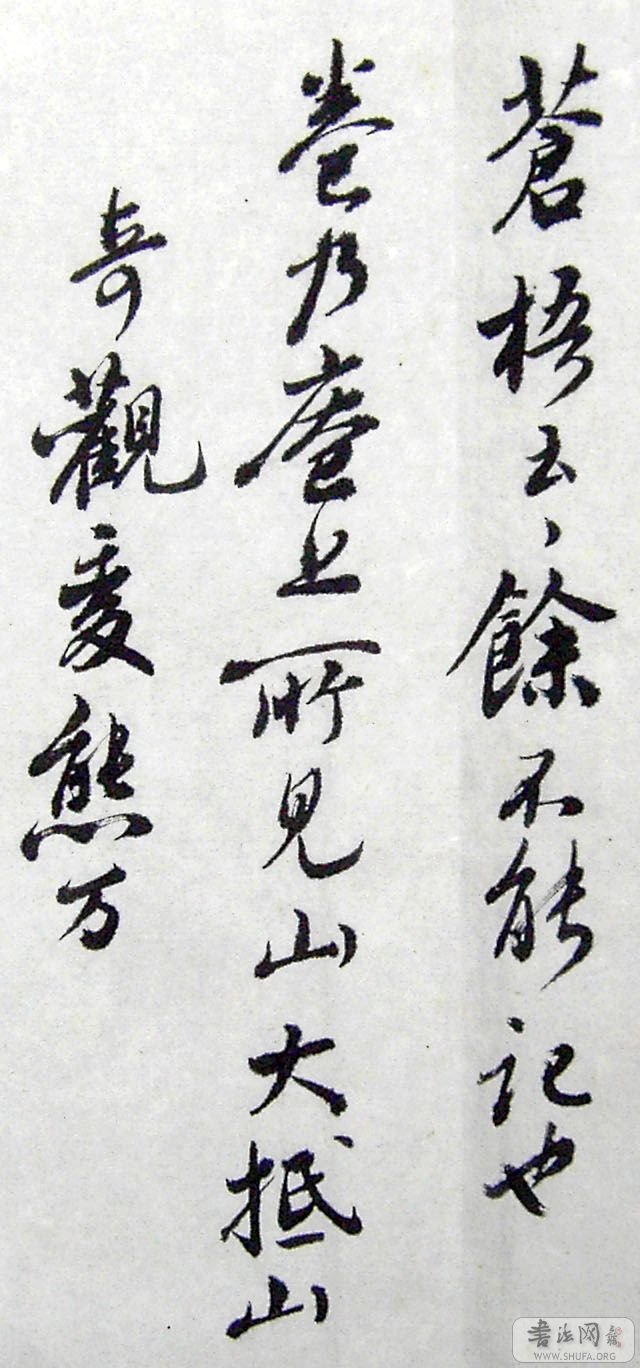 蒼梧云〻餘不能記也
卷乃庵上所見山大抵山
奇觀變態万
書法网
WWW.SHUFA.ORG